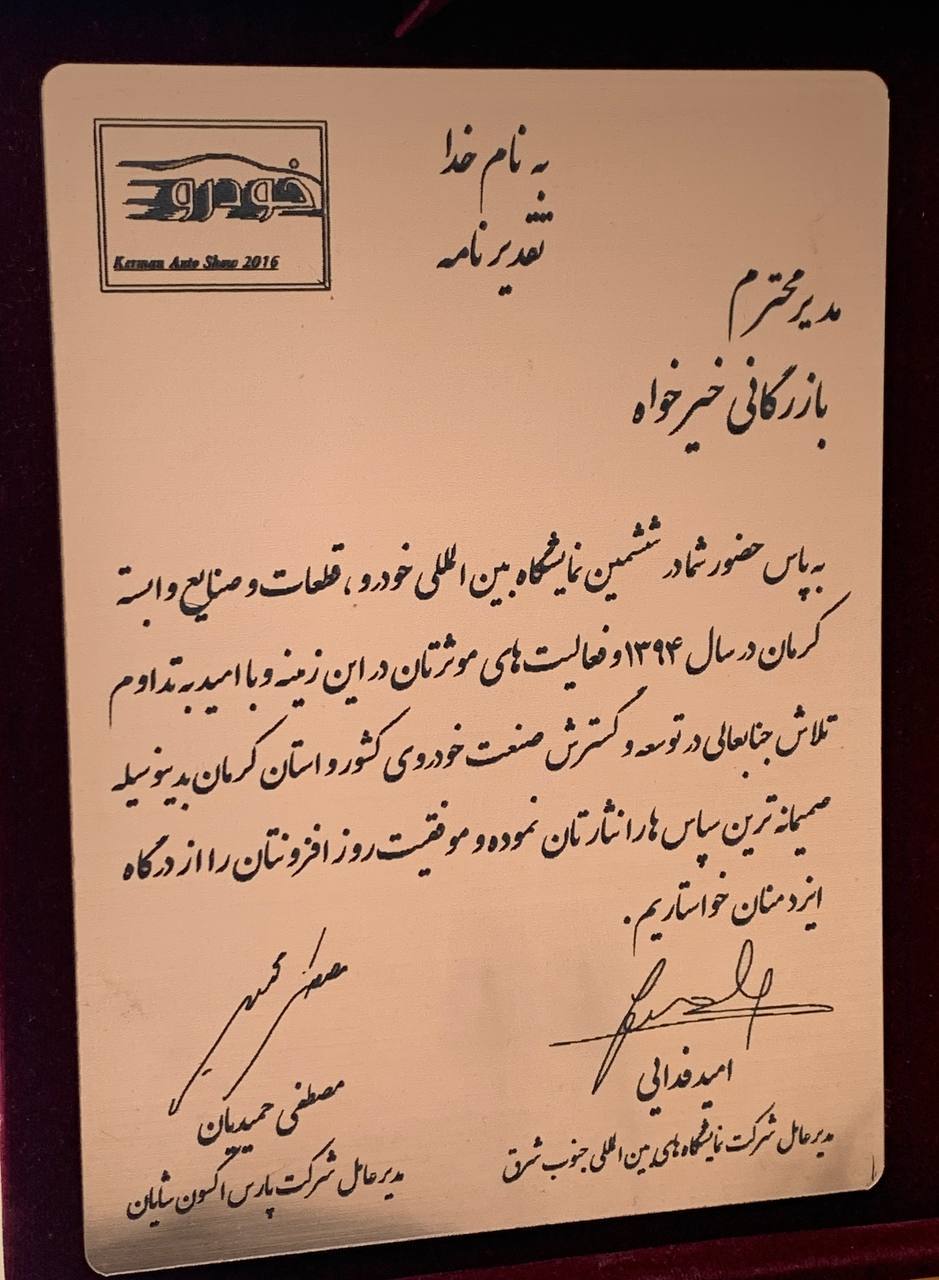 به نام خدا
تقدیر نامه
خودرو
Kerman Auto Show 2016
مدیر محترم
بازرگانی خیرخواه
به پاس حضور شما در ششمین نمایشگاه بین المللی خودرو ، قطعات و صنایع وابسته
کرمان در سال ۱۳۹۴ و فعالیت های موثرتان در این زمینه و با امید به تداوم
تلاش جنابعالی در توسعه و گسترش صنعت خودروی کشور و استان کرمان بدینوسیله
صمیمانه ترین سپاس ها را نثارتان نموده و موفقیت روز افزونتان را از درگاه
ایزد منان خواستاریم .
امید فدائی
مدیر عامل شرکت نمایشگاه های بین المللی جنوب شرق
مصطفی حمیدیان
مدیر عامل شرکت پارس اکسون شایان